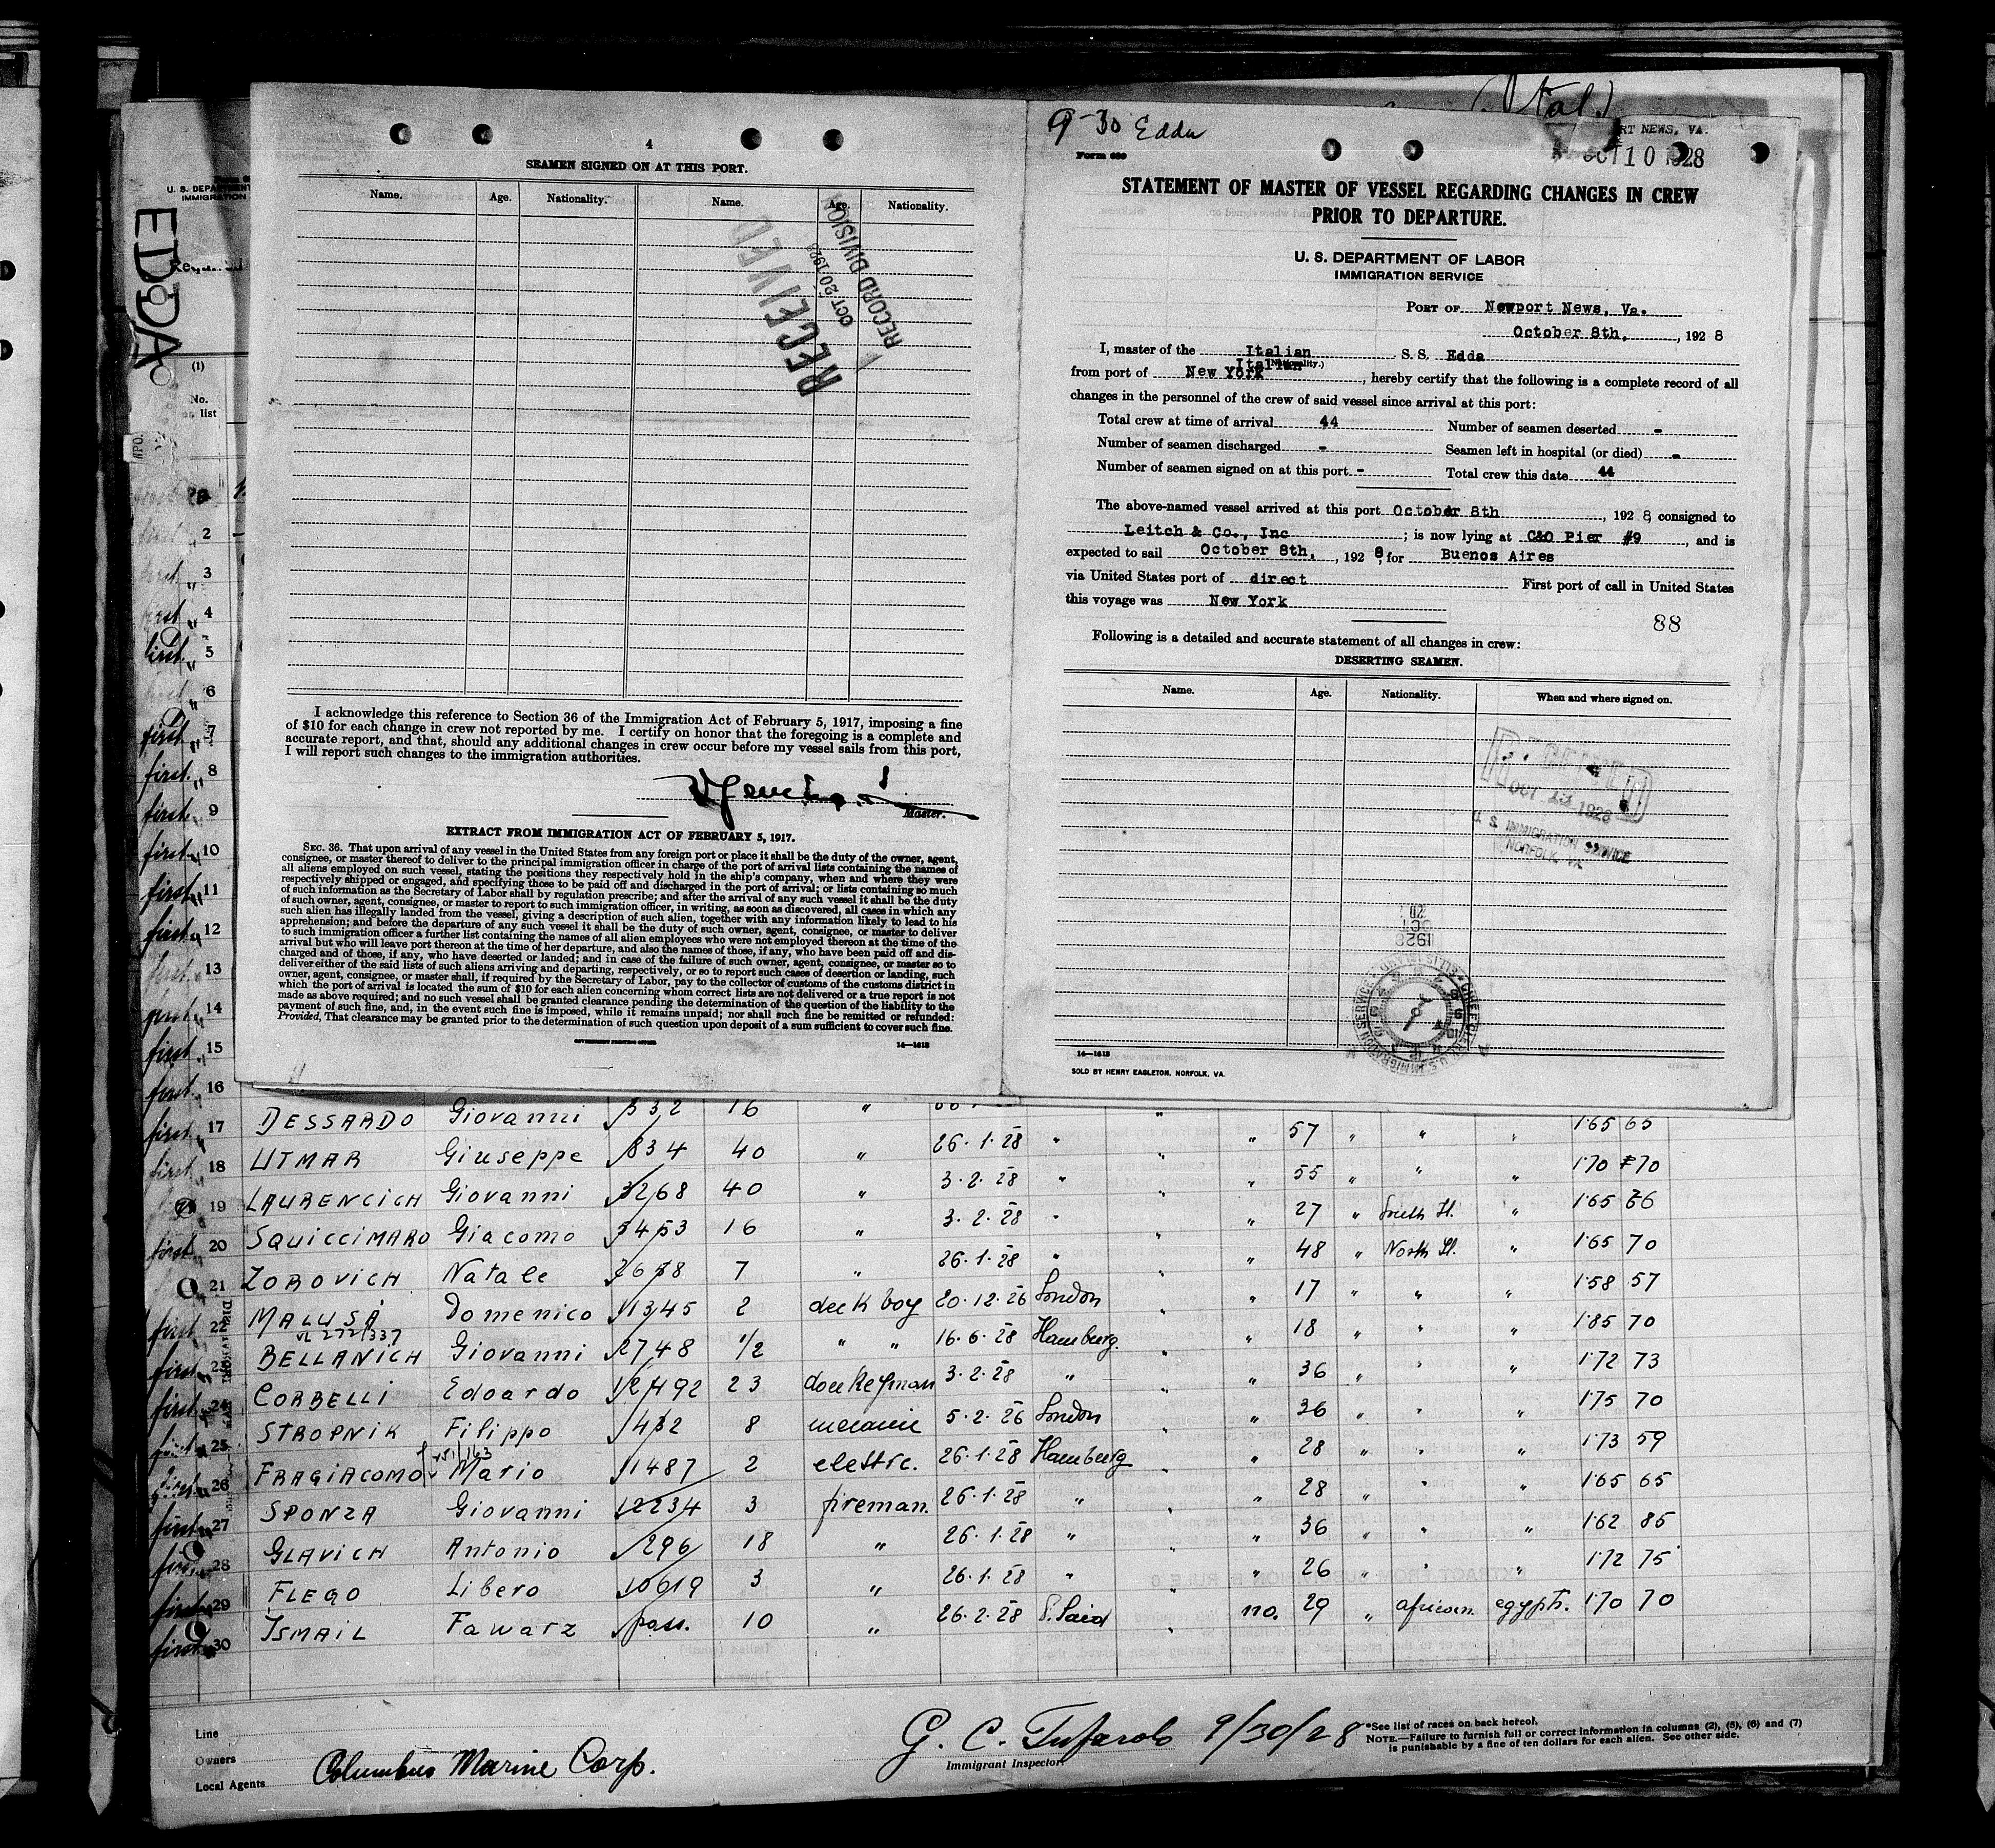 4
SEAMEN SIGNED ON AT THIS PORT.
Name. Age. Nationality. Name. Age. Nationality.
RECEIVED
OCT 20 1928
RECORD DIVISION
I acknowledge this reference to Section 36 of the Immigration Act of February 5, 1917, imposing a fine
of $10 for each change in crew not reported by me. I certify on honor that the foregoing is a complete and
accurate report, and that, should any additional changes in crew occur before my vessel sails from this port,
I will report such changes to the immigration authorities.
Master.
EXTRACT FROM IMMIGRATION ACT OF FEBRUARY 5, 1917.
SEC. 36. That upon arrival of any vessel in the United States from any foreign port or place it shall be the duty of the owner, agent,
consignee, or master thereof to deliver to the principal immigration officer in charge of the port of arrival lists containing the names of
all aliens employed on such vessel, stating the positions they respectively hold in the ship's company, when and where they were
respectively shipped or engaged, and specifying those to be paid off and discharged in the port of arrival; or lists containing so much
of such information as the Secretary of Labor shall by regulation prescribe; and after the arrival of any such vessel it shall be the duty
of such owner, agent, consignee, or master to report to such immigration officer, in writing, as soon as discovered, all cases in which any
such alien has illegally landed from the vessel, giving a description of such alien, together with any information likely to lead to his
apprehension; and before the departure of any such vessel it shall be the duty of such owner, agent, consignee, or master to deliver
to such immigration officer a further list containing the names of all alien employees who were not employed thereon at the time of the
arrival but who will leave port thereon at the time of her departure, and also the names of those, if any, who have been paid off and dis-
charged and of those, if any, who have deserted or landed; and in case of the failure of such owner, agent, consignee, or master so to
deliver either of the said lists of such aliens arriving and departing, respectively, or so to report such cases of desertion or landing, such
owner, agent, consignee, or master shall, if required by the Secretary of Labor, pay to the collector of customs of the customs district in
which the port of arrival is located the sum of $10 for each alien concerning whom correct lists are not delivered or a true report is not
made as above required; and no such vessel shall be granted clearance pending the determination of the question of the liability to the
payment of such fine, and, in the event such fine is imposed, while it remains unpaid; nor shall such fine be remitted or refunded:
Provided, That clearance may be granted prior to the determination of such question upon deposit of a sum sufficient to cover such fine.
GOVERNMENT PRINTING OFFICE 14—1613
(Ital.)
9-30 Edda
RT NEWS, VA.
OCT 10 1928
Form 689
STATEMENT OF MASTER OF VESSEL REGARDING CHANGES IN CREW
PRIOR TO DEPARTURE.
U. S. DEPARTMENT OF LABOR
IMMIGRATION SERVICE
PORT OF Newport News, Va.
October 8th, , 192 8
I, master of the Italian S. S. Edda
Italian (Nationality.)
from port of New York , hereby certify that the following is a complete record of all
changes in the personnel of the crew of said vessel since arrival at this port:
Total crew at time of arrival 44 Number of seamen deserted -
Number of seamen discharged - Seamen left in hospital (or died) -
Number of seamen signed on at this port - Total crew this date 44
The above-named vessel arrived at this port October 8th , 192 8, consigned to
Leitch & Co., Inc ; is now lying at C&O Pier #9 , and is
expected to sail October 8th, , 192 8, for Buenos Aires
via United States port of direct First port of call in United States
this voyage was New York
88
Following is a detailed and accurate statement of all changes in crew:
DESERTING SEAMEN.
Name. Age. Nationality. When and where signed on.
RECEIVED
OCT 13 1928
U. S. IMMIGRATION SERVICE
NORFOLK, VA.
1928
OCT
20
14—1613
SOLD BY HENRY EAGLETON, NORFOLK, VA.
U. S. DEPARTMENT
IMMIGRATION
EDDA
(1)
No.
on list
2
first " 3
first " 4
first " 5
first " 6
first " 7
first " 8
first " 9
first " 10
first " 11
first " 12
first " 13
first " 14
first " 15
first " 16
first " 17 DESSARDO Giovanni 332 16 "
first " 18 UTMAR Giuseppe 834 40 " 26.1.28 " " " 57 " " " 1.65 65
19 LAURENCICH Giovanni 3268 40 " 3.2.28 " " " 55 " " " 1.70 70
first " 20 SQUICCIMARO Giacomo 3453 16 " 3.2.28 " " " 27 " South It. " 1.65 66
21 ZOROVICH Natale 2678 7 " 26.1.28 " " " 48 " North It. " 1.65 70
first 22 MALUSÀ Domenico 11345 2 deck boy 20.12.26 London " " 17 " " " 1.58 57
first 23 BELLANICH Giovanni 2748 1/2 " " 16.6.28 Hamburg. " 18 " " " 1.85 70
first 24 CORBELLI Edoardo 12492 23 donkeyman 3.2.28 " " " 36 " " " 1.72 73
first 25 STROPNIK Filippo 432 8 5.2.26 London " " 36 " " " 1.75 70
first 26 FRAGIACOMO Mario 11487 2 elettrc. 26.1.28 Hamburg " " 28 " " " 1.73 59
first 27 SPONZA Giovanni 12234 3 fireman. 26.1.28 " " " 28 " " " 1.65 65
first 28 GLAVICH Antonio 296 18 " 26.1.28 " " " 36 " " " 1.62 85
first 29 FLEGO Libero 10619 3 " 26.1.28 " " " 26 " " " 1.72 75
first 30 ISMAIL Fawarz pass. 10 " 26.2.28 P. Said " no. 29 " african. egypt. 1.70 70
Line
Owners
Local Agents Columbus Marine Corp.
G. C. Tufarolo 9/30/28
Immigrant Inspector.
*See list of races on back hereof.
NOTE.—Failure to furnish full or correct information in columns (2), (5), (6) and (7)
is punishable by a fine of ten dollars for each alien. See other side.